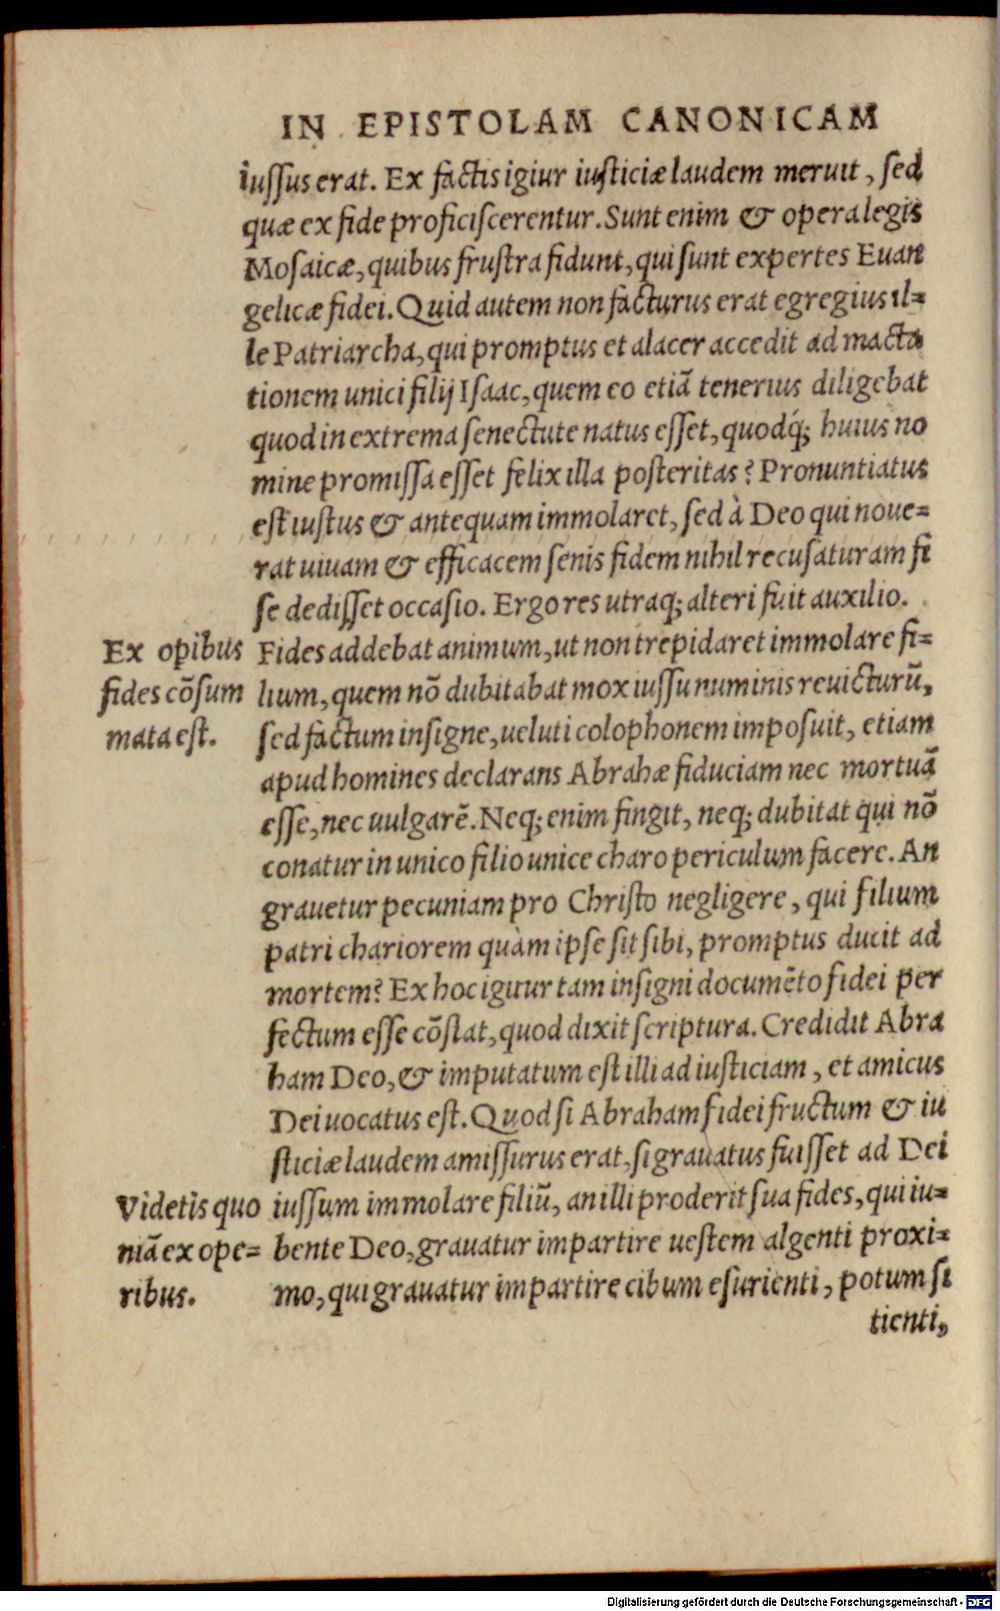 IN EPISTOLAM CANONICAM
iussus erat. Ex factis igiur iusticiæ laudem meruit, sed
quæ ex fide proficiscerentur. Sunt enim & opera legis
Mosaicæ, quibus frustra fidunt, qui sunt expertes Euan
gelicæ fidei. Quid autem non facturus erat egregius il=
le Patriarcha, qui promptus et alacer accedit ad macta
tionem unici filij Isaac, quem eo etiã tenerius diligebat
quod in extrema senectute natus esset, quodq́; huius no
mine promissa esset felix illa posteritas? Pronuntiatus
est iustus & antequam immolaret, sed à Deo qui noue=
rat uiuam & efficacem senis fidem nihil recusaturam si
se dedisset occasio. Ergo res utraq; alteri fuit auxilio.
Ex opibus
fides cõsum
mata est.
Fides addebat animum, ut non trepidaret immolare fi=
lium, quem nõ dubitabat mox iussu numinis reuicturũ,
sed factum insigne, ueluti colophonem imposuit, etiam
apud homines declarans Abrahæ fiduciam nec mortuã
esse, nec uulgarẽ. Neq; enim fingit, neq; dubitat qui nõ
conatur in unico filio unice charo periculum facere. An
grauetur pecuniam pro Christo negligere, qui filium
patri chariorem quàm ipse sit sibi, promptus ducit ad
mortem? Ex hoc igitur tam insigni documẽto fidei per
fectum esse cõstat, quod dixit scriptura. Credidit Abra
ham Deo, & imputatum est illi ad iusticiam, et amicus
Dei uocatus est. Quod si Abraham fidei fructum & iu
sticiæ laudem amissurus erat, si grauatus fuisset ad Dei
Videtis quo
niã ex ope=
ribus.
iussum immolare filiũ, an illi proderit sua fides, qui iu=
bente Deo, grauatur impartire uestem algenti proxi=
mo, qui grauatur impartire cibum esurienti, potum si
tienti,
Digitalisierung gefördert durch die Deutsche Forschungsgemeinschaft - DFG